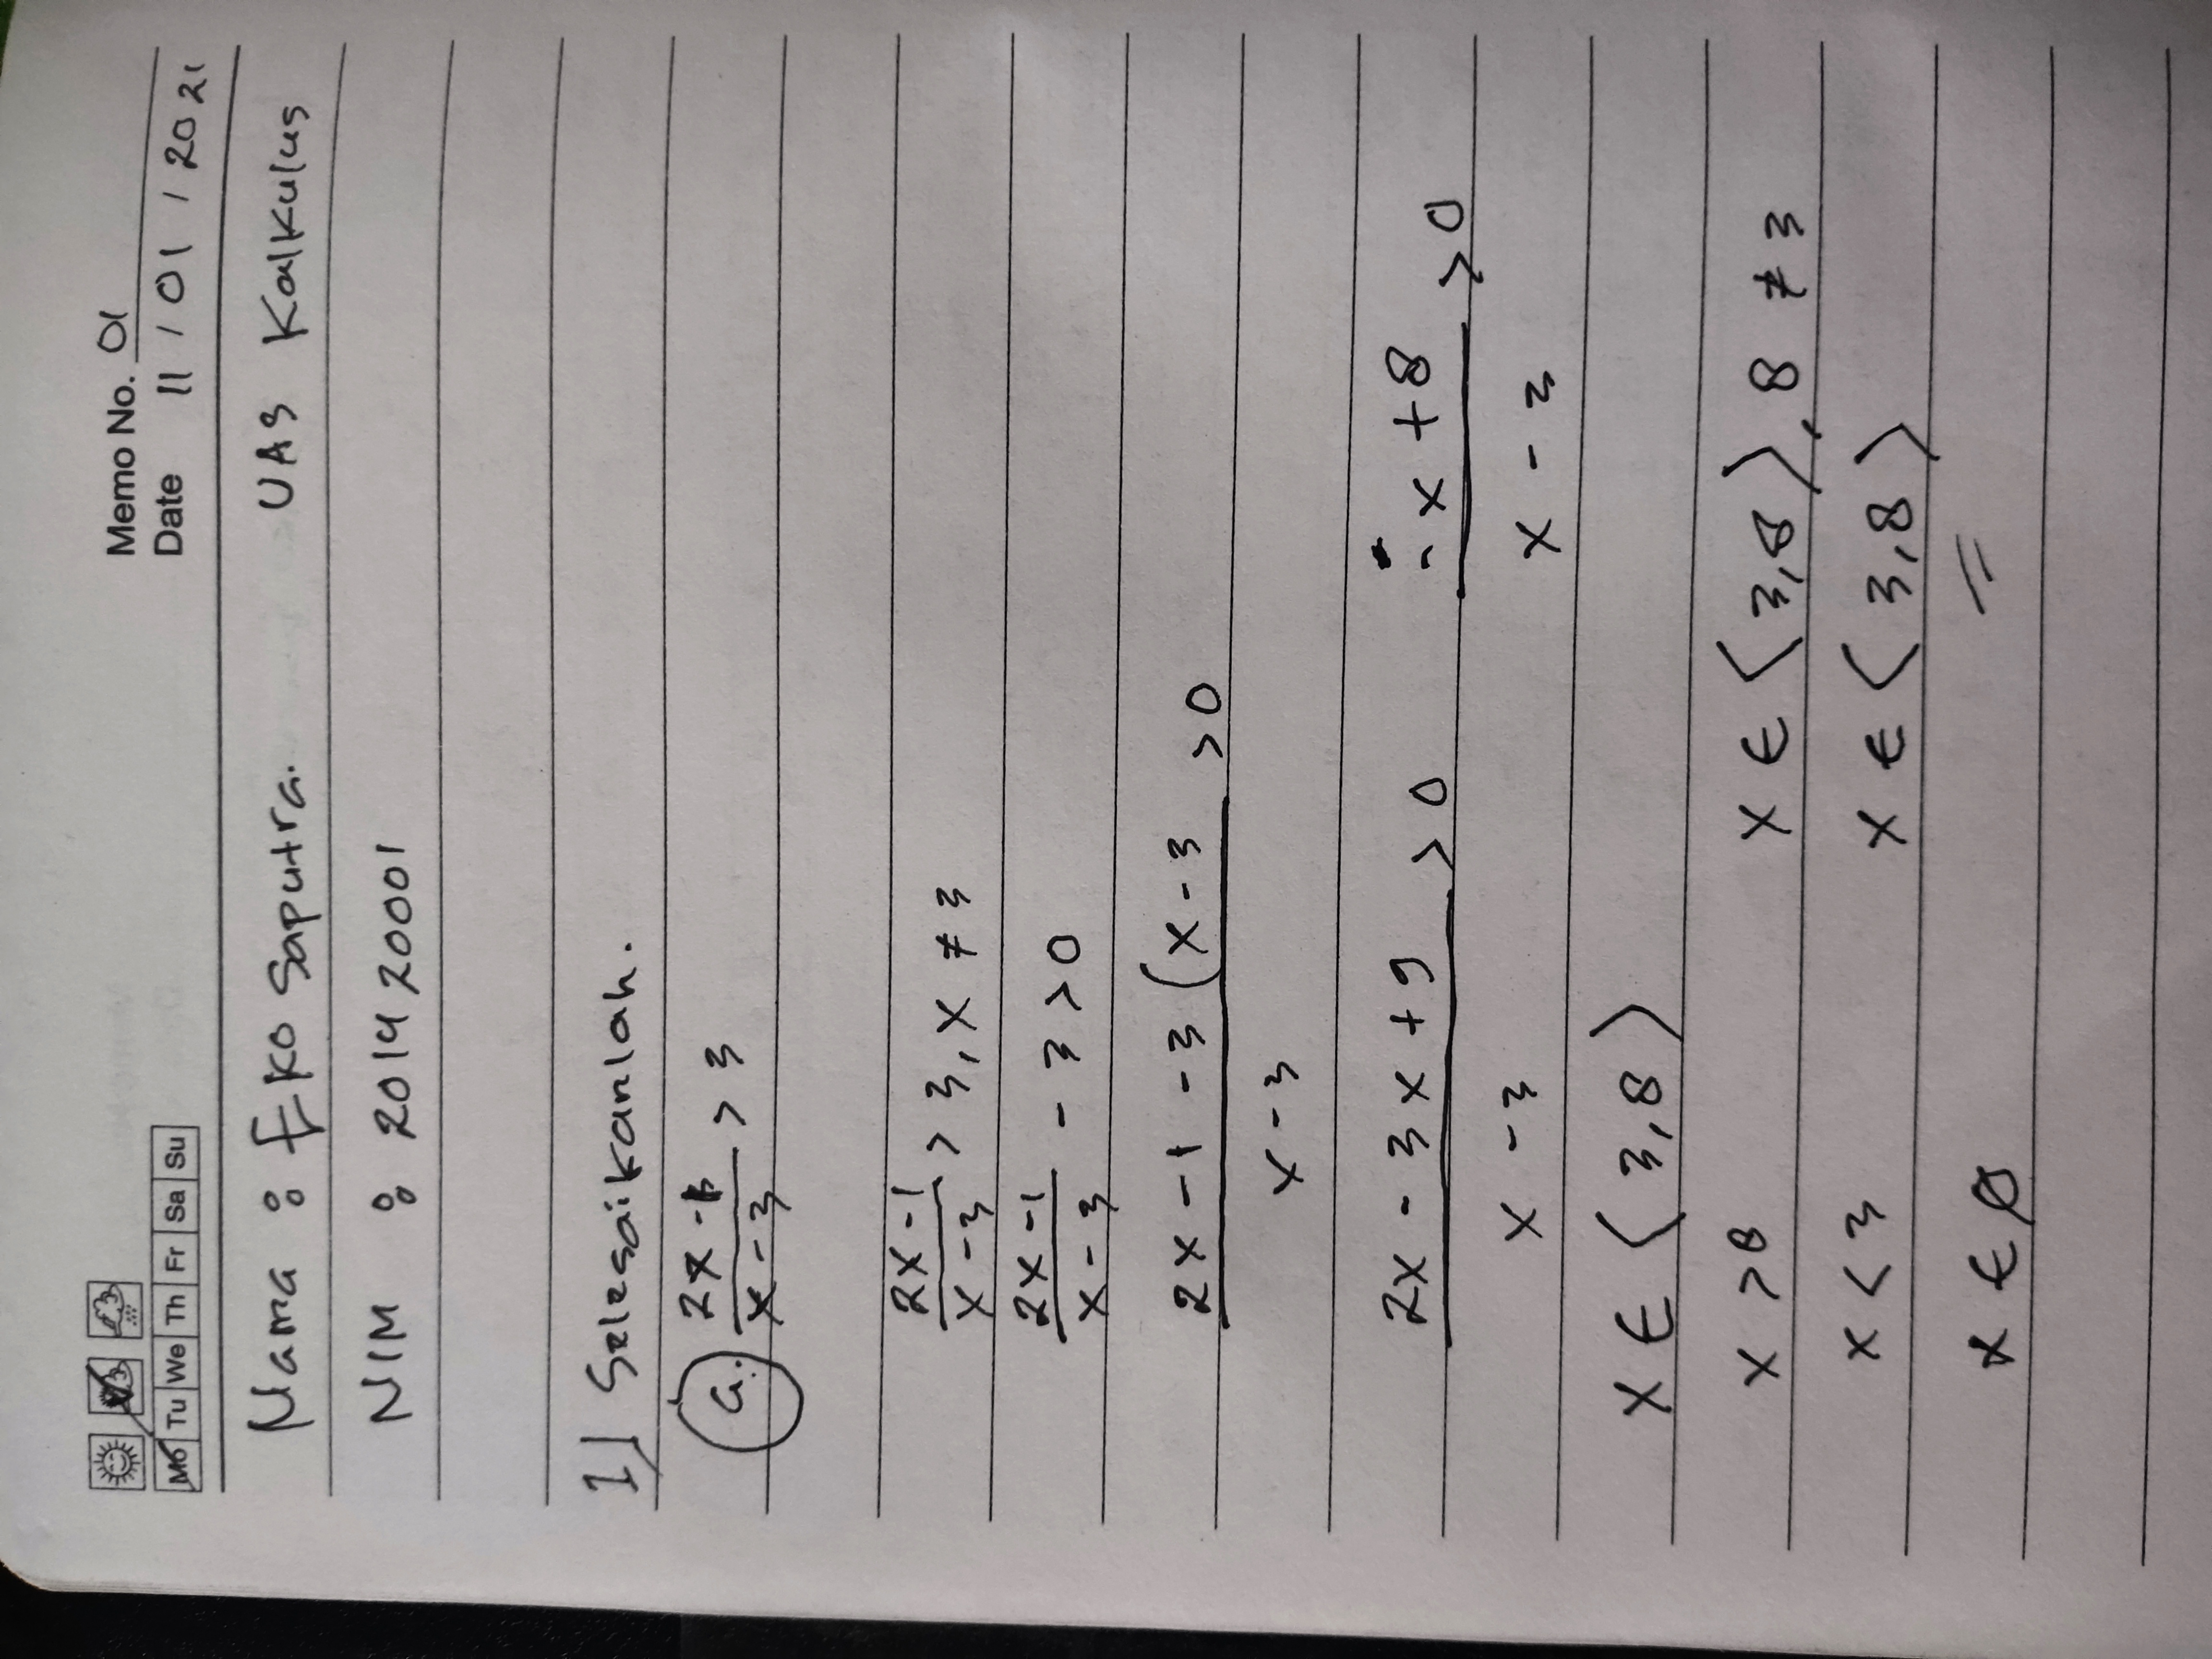 Memo No. 01
Mo Tu We Th Fr Sa Su
Date 11 / 01 / 2021
Nama : Eko Saputra. UAS Kalkulus
NIM : 201420001
1] Selesaikanlah.
a. (2x - 1)/(x - 3) > 3
(2x - 1)/(x - 3) > 3, x ≠ 3
(2x - 1)/(x - 3) - 3 > 0
2x - 1 - 3 (x - 3 > 0
x - 3
2x - 3x + 9 > 0 - x + 8 > 0
x - 3 x - 3
x ∈ ⟨ 3,8 ⟩
x > 8 x ∈ ⟨ 3,8 ⟩, 8 ≠ 3
x < 3 x ∈ ⟨ 3,8 ⟩
x ∈ ∅